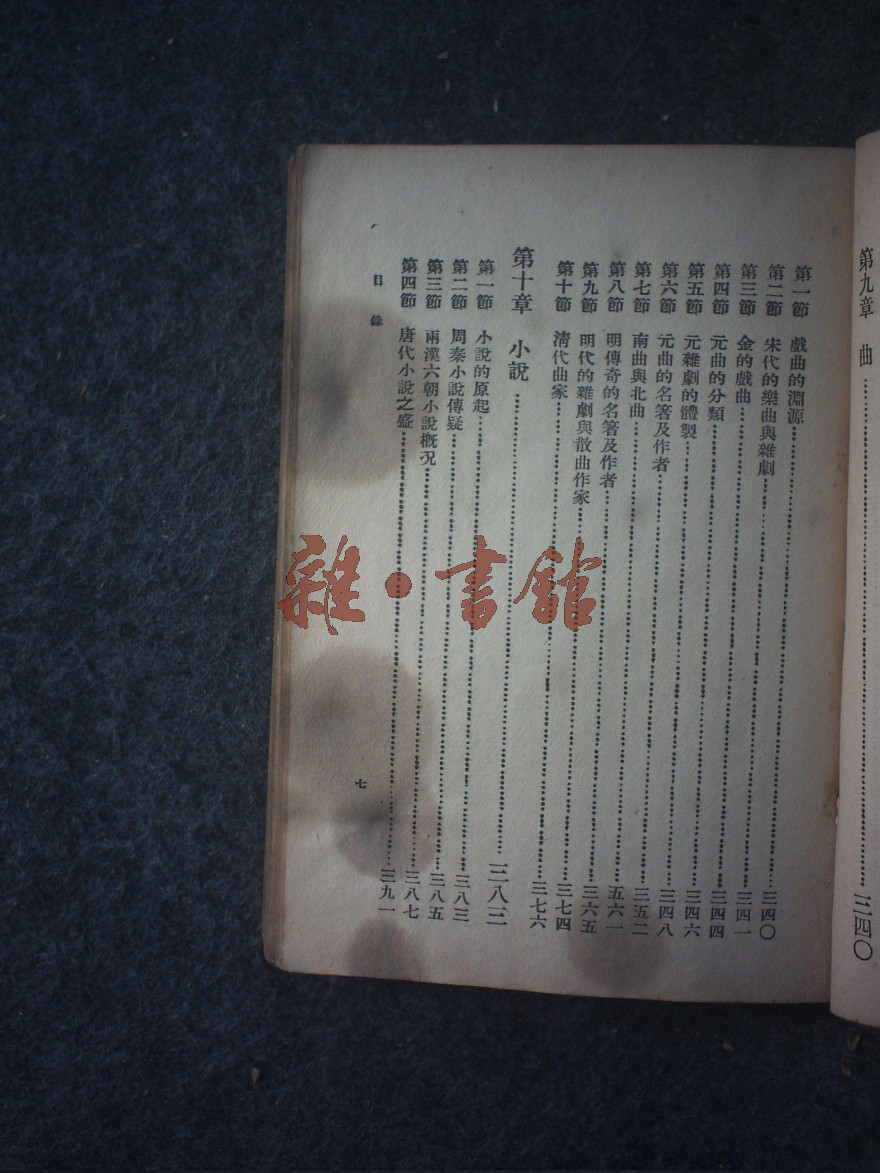 第九章 曲……三四〇
第一節 戲曲的淵源……三四〇
第二節 宋代的樂曲與雜劇……三四一
第三節 金的戲曲……三四四
第四節 元曲的分類……三四六
第五節 元雜劇的體製……三四八
第六節 元曲的名箸及作者……三五二
第七節 南曲與北曲……五六一
第八節 明傳奇的名箸及作者……三六五
第九節 明代的雜劇與散曲作家……三七四
第十節 清代曲家……三七六
第十章 小說……三八三
第一節 小說的原起……三八三
第二節 周秦小說傳疑……三八五
第三節 兩漢六朝小說概況……三八七
第四節 唐代小說之盛……三九一
目錄
七
雜·書館